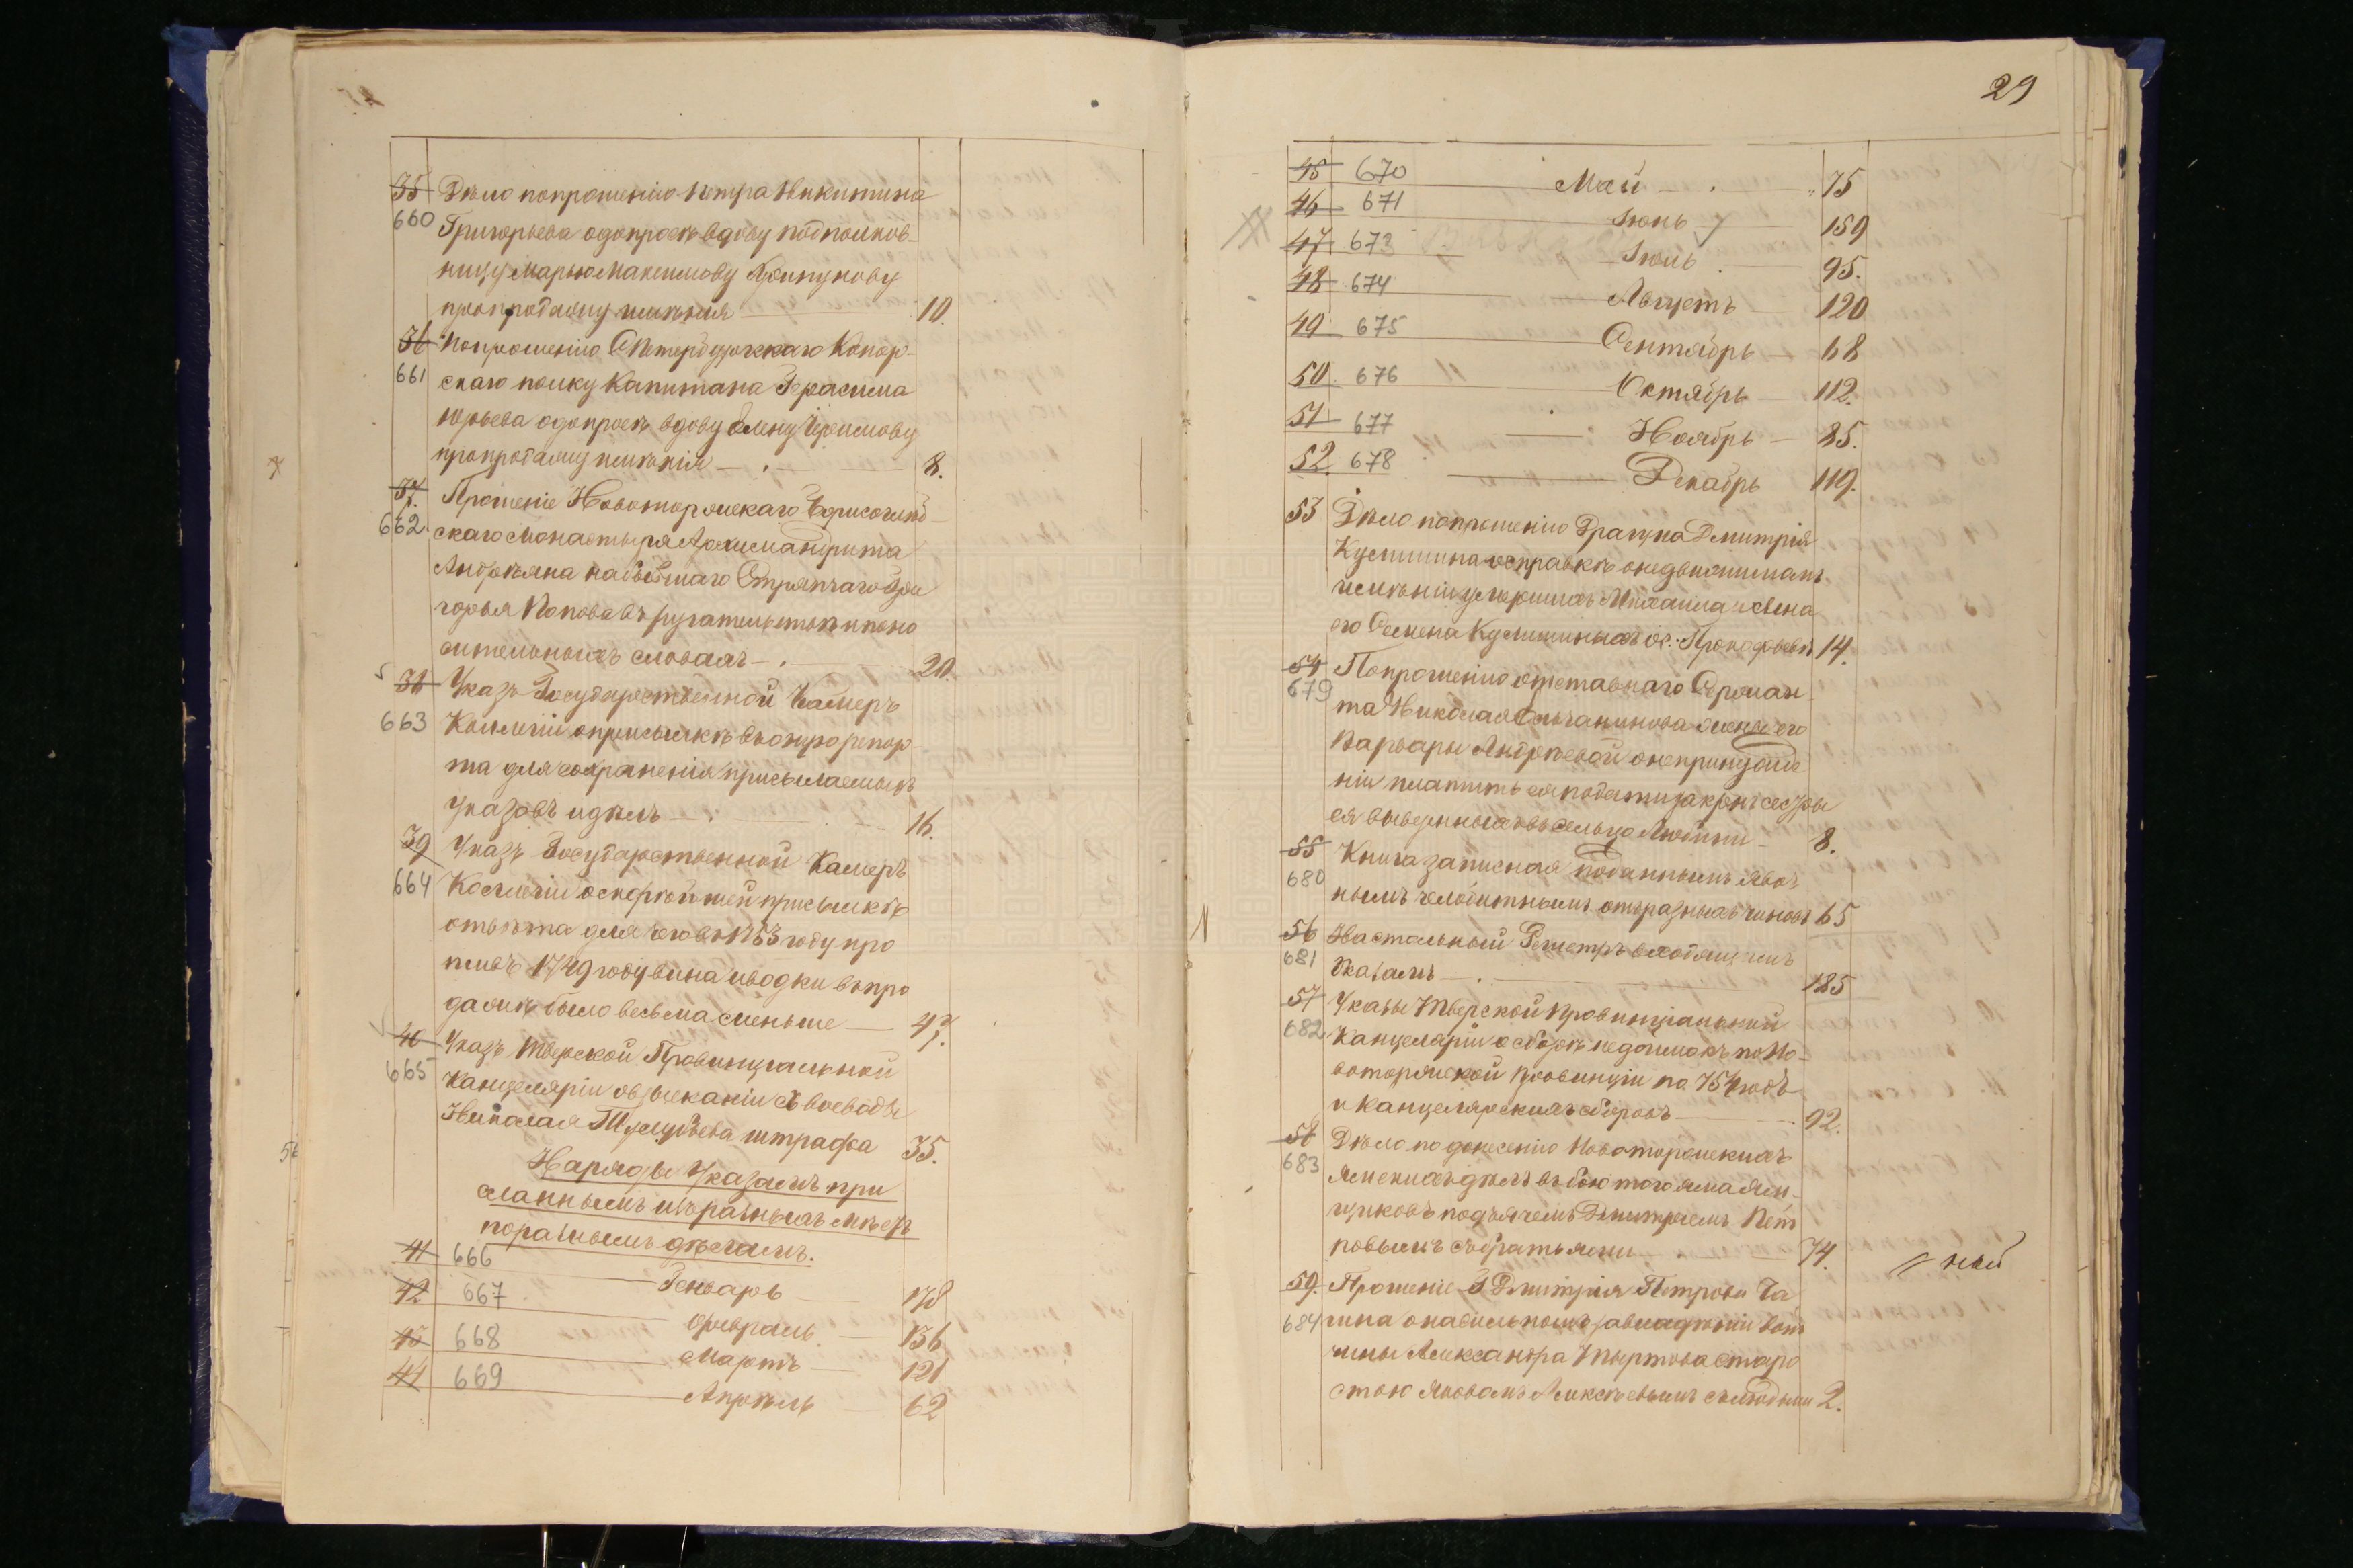 35 Дѣло попрошенію Петра Никитина
660 Григорьева одопросѣ вдову подполков-
ницу Марью Максимову
пропродажу имѣнія 10.
36 Попрошенію СПетербургскаго Копор-
661 скаго полку Капитана Герасима
Юрьева одопросѣ вдову Елену
пропродажу имѣнія 8.
37. Прошеніе Новоторжскаго Борисоглѣб-
662 скаго Монастыря Архимандрита
Андреяна набывшаго Стряпчаго Гри
горья Попова въ ругательствѣ и поно
сительныхъ словахъ 20.
38 Указъ Государственной Камеръ
663 Коллегіи оприсылкѣ въ оную репор-
та для сохраненія присылаемыхъ
указовъ идѣлъ 16.
39 Указъ Государственной Камеръ
664 Коллегіи оскорѣйшей присылкѣ
отвѣта для чего въ 1753 году про
тивъ 1749 году вина иводки въ про
дажѣ было весьма сменьше 47.
40 Указъ Тверской Провинціальной
665 Канцеляріи овзысканіи съ воеводы
Николая штрафа 35.
Наряды Указамъ при
сланнымъ изъ разныхъ мѣстъ
поразнымъ дѣламъ.
41 666 Генварь 178
42 667 Февраль 136
43 668 Мартъ 121
44 669 Апрѣль 62
29
45 670 Май 75
46 671 Іюнь 159
47 673 Іюль 95.
48 674 Августъ 120
49 675 Сентябрь 68
50. 676 Октябрь 112.
51 677 Ноябрь 85.
52. 678 Декабрь 119.
53 Дѣло попрошенію Драгуна Дмитрія
Кузьмина осправкѣ онедвижимомъ
имѣніи умершихъ Михаила исына
его Семена Кузьминыхъ ос. Прокофьевѣ 14.
54 Попрошенію отставнаго Сержан-
679 та Николая жены его
Варвары Андреевой онепринужде
ніи платить ей подати закрестьянъ
ея вывезенныхъ въ сельцо 8.
55 Книга записная поданнымъ явоч
680 нымъ челобитнымъ отъ разныхъ чиновъ 65
56 Настольный Регистръ входящимъ
681 Указамъ 185
57 Указы Тверской Провинціальной
682 Канцеляріи осборѣ недоимокъ по Но-
воторжской Провинціи на 754 годъ
и Канцелярскихъ сборовъ 92.
58 Дѣло по донесенію Новоторжскихъ
683 Ямскихъ дѣлъ въ бою того яма Ям-
щиковъ подъячемъ Дмитріемъ Пет
ровымъ собратьями 74.
// ной
59. Прошеніе Дмитрія Петрова Ча
684 гина онасильномъ завладѣніи Вот
чины Александра Тыртова Старо
стою Яковомъ Алексѣевымъ слюдьми 2.